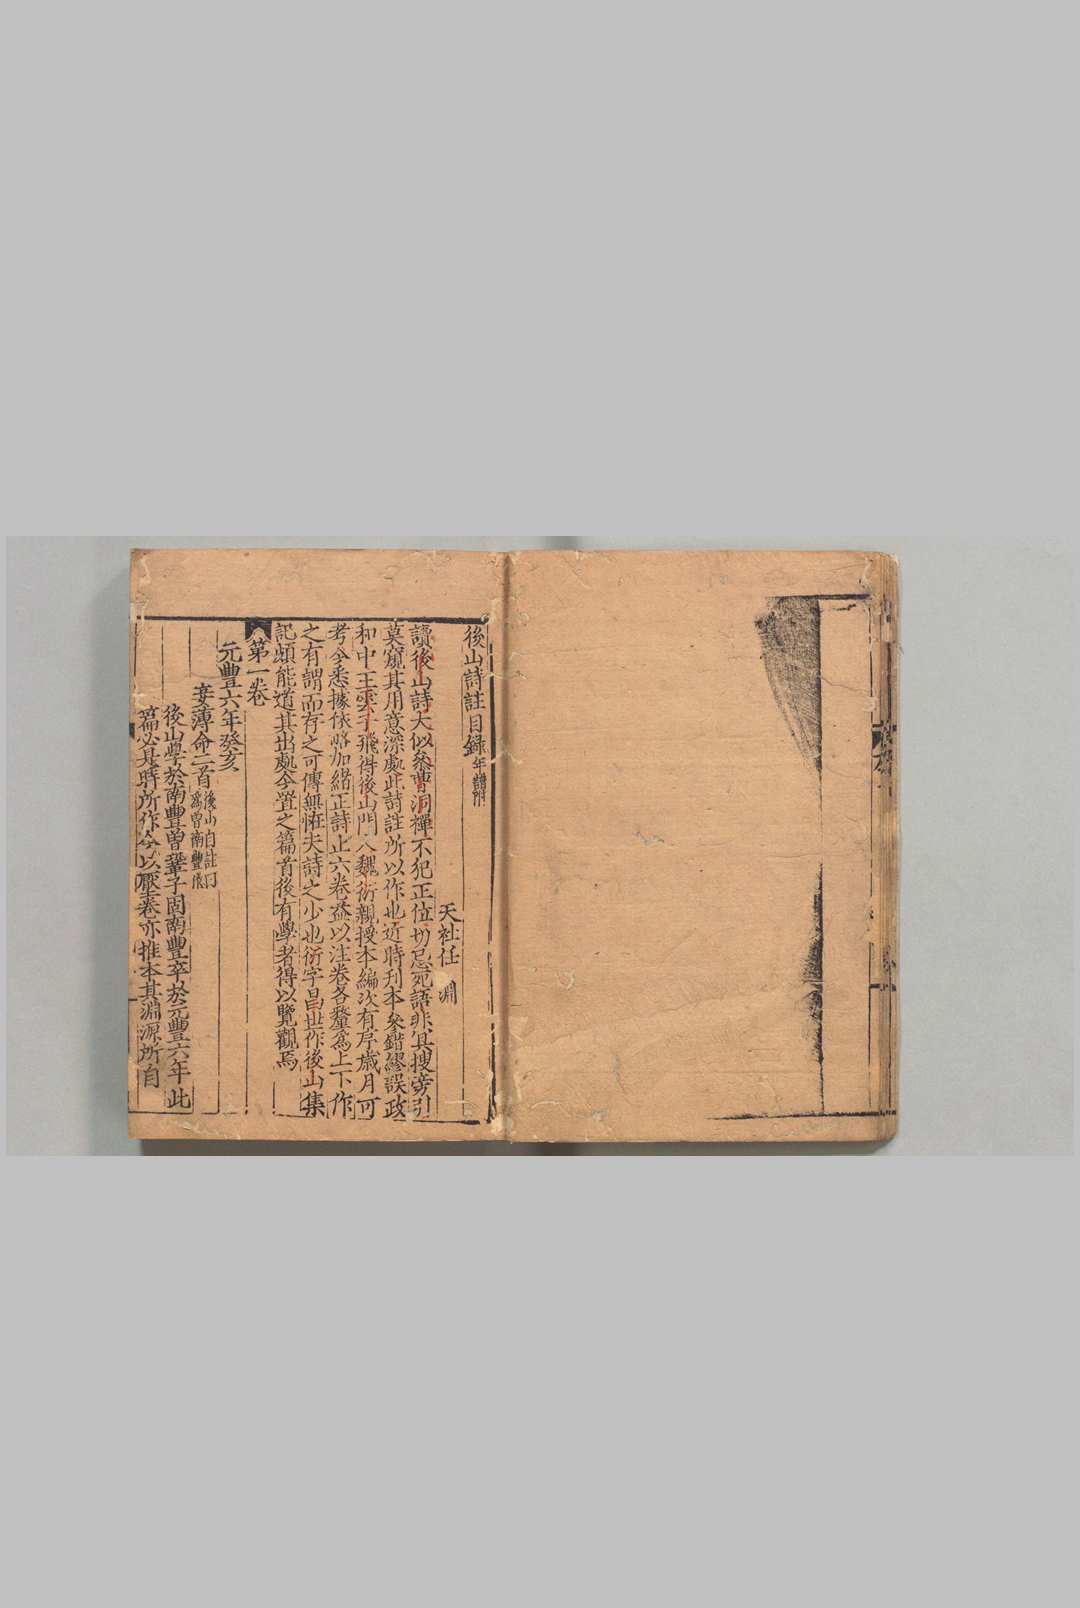 後山詩註目録年譜附
天社任　淵
讀後山詩大似參曹洞禪不犯正位切忌死語非冥搜旁引
莫窺其用意深處此詩註所以作也近時刊本參錯繆誤政
和中王雲子飛得後山門人魏衍親授本編次有序歲月可
考今悉據依略加緒正詩止六卷益以注卷各釐爲上下作
之有謂而存之可傳無恠夫詩之少也衍字昌世作後山集
記頗能道其出處今置之篇首後有學者得以覽觀焉
第一卷
元豐六年癸亥
妾薄命二首後山自註曰爲曾南豐作
後山學於南豐曾鞏子固南豐卒於元豐六年此
篇必其時所作今以壓卷亦推本其淵源所自